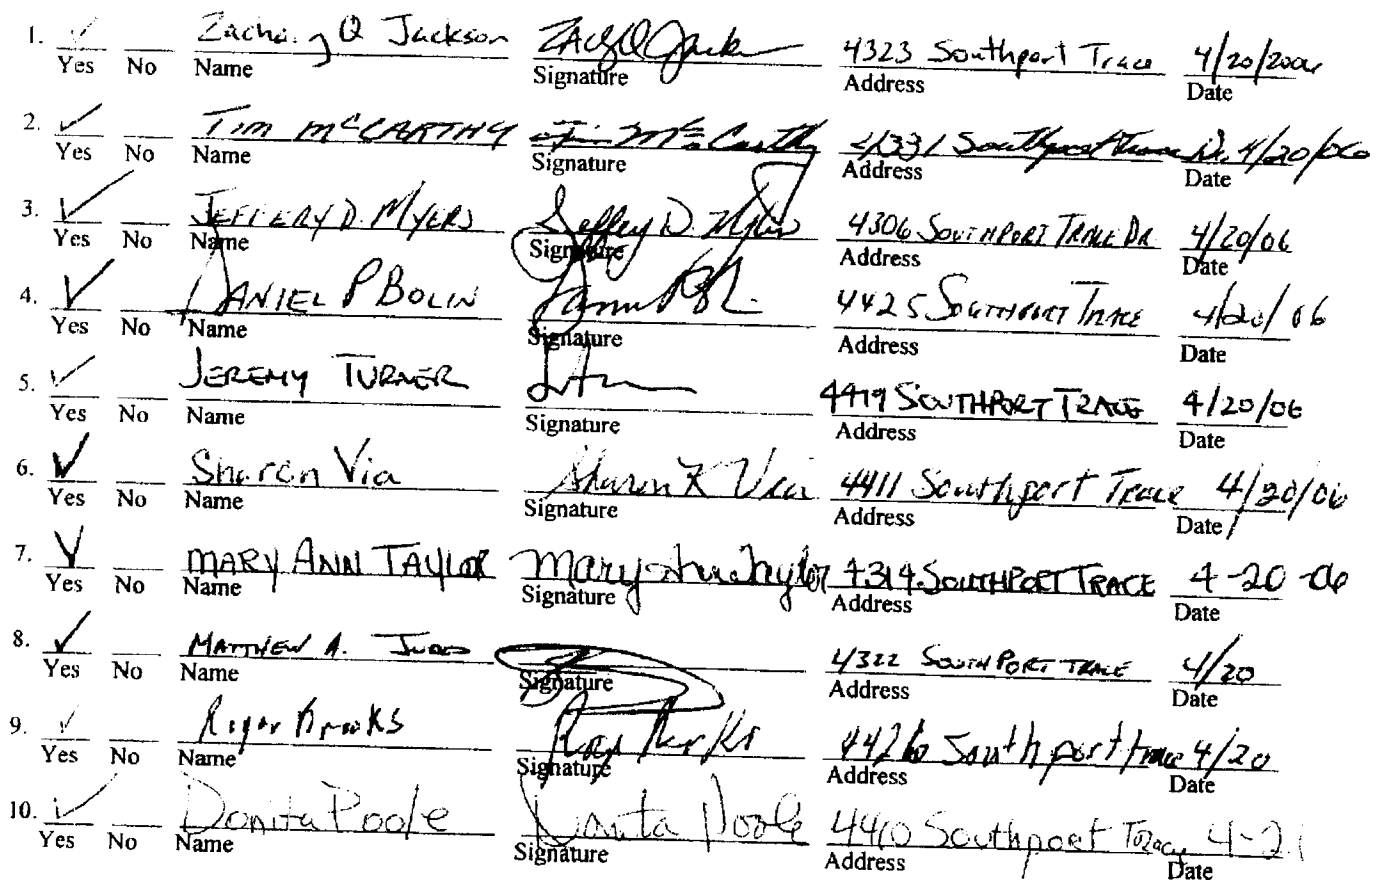 1. ✓ Zachary Q Jackson Zachary Q Jackson 4323 Southport Trace 4/20/2006
Yes No Name Signature Address Date
2. ✓ Tim McCARTHY Tim McCarthy 4331 Southport Trace Dr. 4/20/06
Yes No Name Signature Address Date
3. ✓ JEFFERY D. MYERS Jeffery D. Myers 4306 SOUTHPORT TRACE DR. 4/20/06
Yes No Name Signature Address Date
4. ✓ DANIEL P BOLIN 4425 SOUTHPORT TRACE 4/20/06
Yes No Name Signature Address Date
5. ✓ JEREMY TURNER 4419 SOUTHPORT TRACE 4/20/06
Yes No Name Signature Address Date
6. ✓ Sharon Via Sharon K Via 4411 Southport Trace 4/20/06
Yes No Name Signature Address Date
7. ✓ MARY ANN TAYLOR Mary Ann Taylor 4314 SOUTHPORT TRACE 4-20-06
Yes No Name Signature Address Date
8. ✓ MATTHEW A. 4322 SOUTHPORT TRACE 4/20
Yes No Name Signature Address Date
9. ✓ Roger Brooks 4426 Southport trace 4/20
Yes No Name Signature Address Date
10. ✓ Donita Poole Donita Poole 4410 Southport Trace 4-21
Yes No Name Signature Address Date